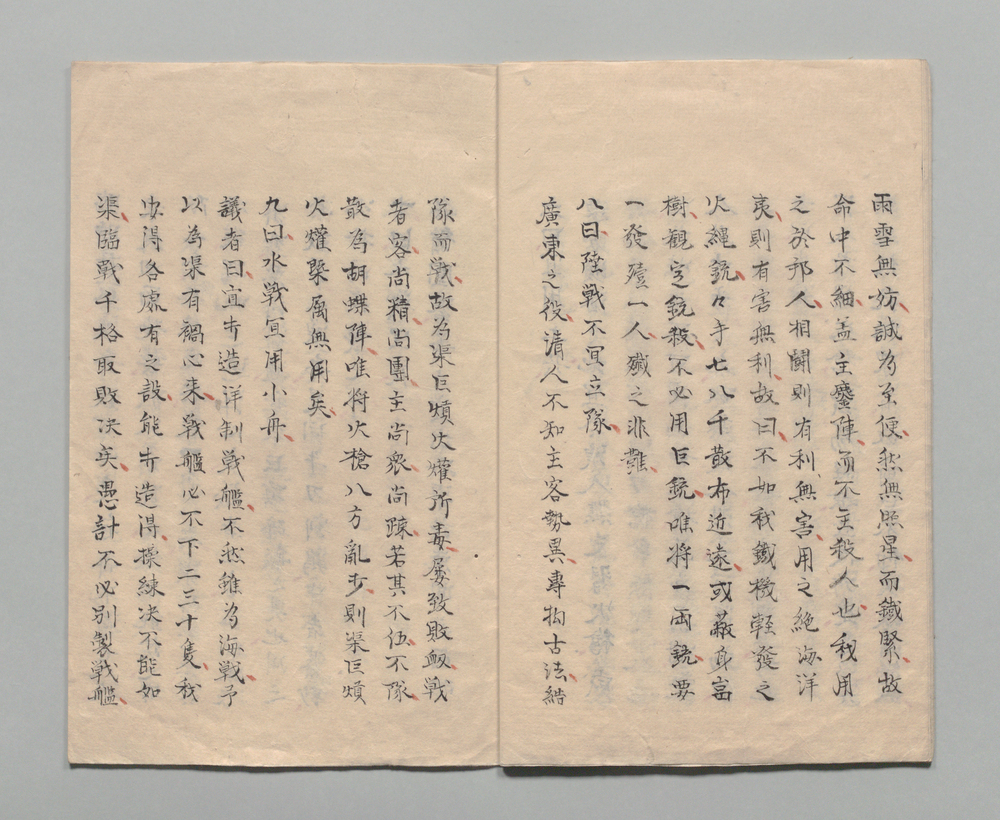 雨雪無妨誠為至便然無照星而鐵緊故
命中不細盖主鏖陣而不主殺人也我用
之於邦人相鬪則有利無害用之絶海洋
夷則有害無利故曰不如我鐵機軽發之
火繩銃々手七八千散布近遠或蔽身嵓
樹觀定銃殺不必用巨銃唯将一両銃要
一發殪一人殲之非難
八曰陸戦不冝立隊
廣東之役清人不知主客勢異專拘古法結
隊而戦故為渠巨熕火爌所毒屡致敗衂戦
者客尚精尚團主尚衆尚踈若其不伍不隊
散為胡蝶陣唯将火槍八方亂歩則渠巨熕
火爌槩属無用矣
九曰水戦冝用小舟
議者曰宜歩造洋制戦艦不然雖為海戦予
以為渠有禍心来戦艦必不下二三十隻我
安得各處有之設能歩造得操練决不能如
渠臨戰千格取敗决矣愚計不必別製戦艦